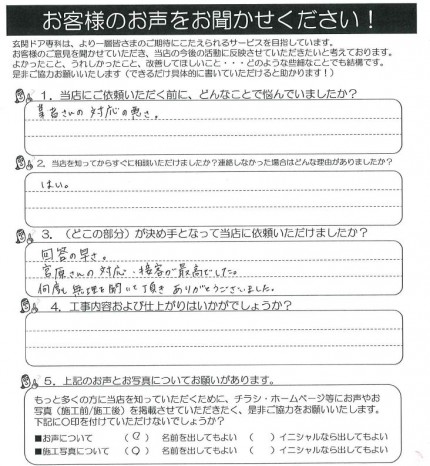 お客様のお声をお聞かせください！
玄関ドア専科は、より一層皆さまのご期待にこたえられるサービスを目指しています。
お客様のご意見を聞かせていただき、当店の今後の活動に反映させていただきたいと考えております。
よかったこと、うれしかったこと、改善してほしいこと・・・どのような些細なことでも結構です。
是非ご協力お願いいたします（できるだけ具体的に書いていただけると助かります！）
1．当店にご依頼いただく前に、どんなことで悩んでいましたか？
業者さんの対応の悪さ。
2．当店を知ってからすぐに相談いただけましたか？連絡しなかった場合はどんな理由がありましたか？
はい。
3．（どこの部分）が決め手となって当店に依頼いただけましたか？
回答の早さ。
宮原さんの対応・接客が最高でした。
何度も無理を聞いて頂きありがとうございました。
4．工事内容および仕上がりはいかがでしょうか？
5．上記のお声とお写真についてお願いがあります。
もっと多くの方に当店を知っていただくために、チラシ・ホームページ等にお声やお
写真（施工前/施工後）を掲載させていただきたく、是非ご協力をお願いいたします。
下記に〇印を付けていただけないでしょうか？
■お声について （○） 名前を出してもよい （ ）イニシャルなら出してもよい
■施工写真について （○） 名前を出してもよい （ ）イニシャルなら出してもよい